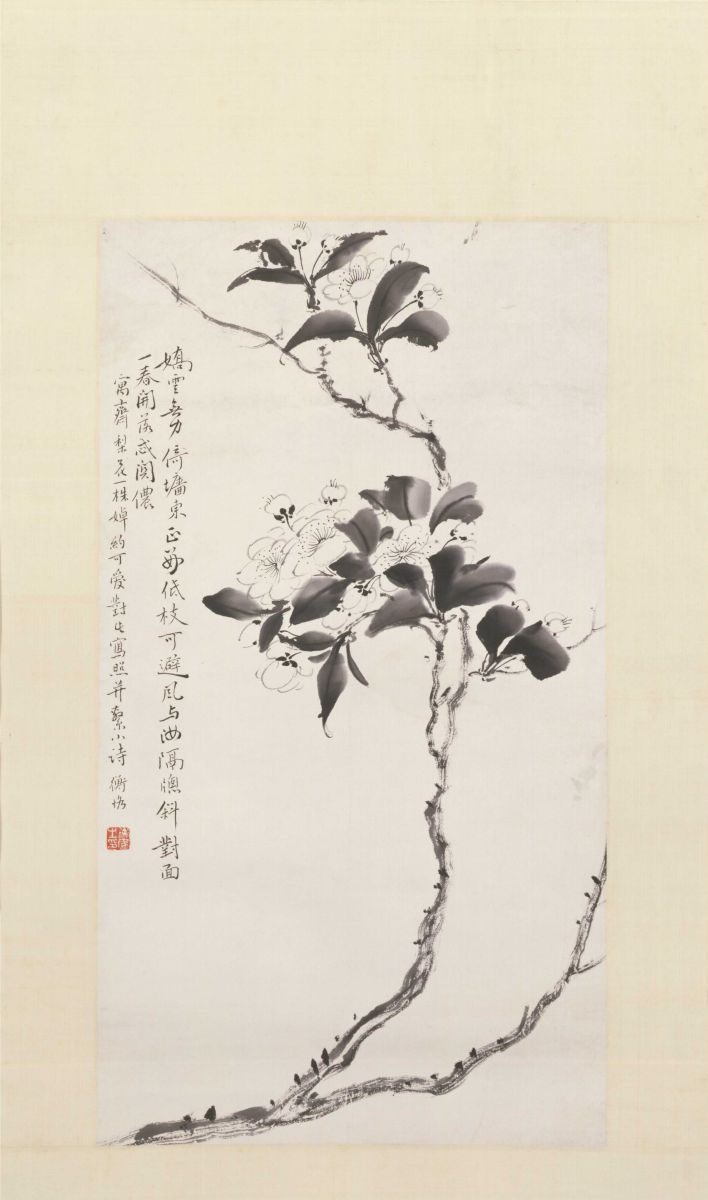 嬌雲無力倚墻東正好低枝可避風与汝隔牕斜對面
一春開落忒關儂
寓齋梨花一株婥約可愛對之寫照并繫小詩 衡恪